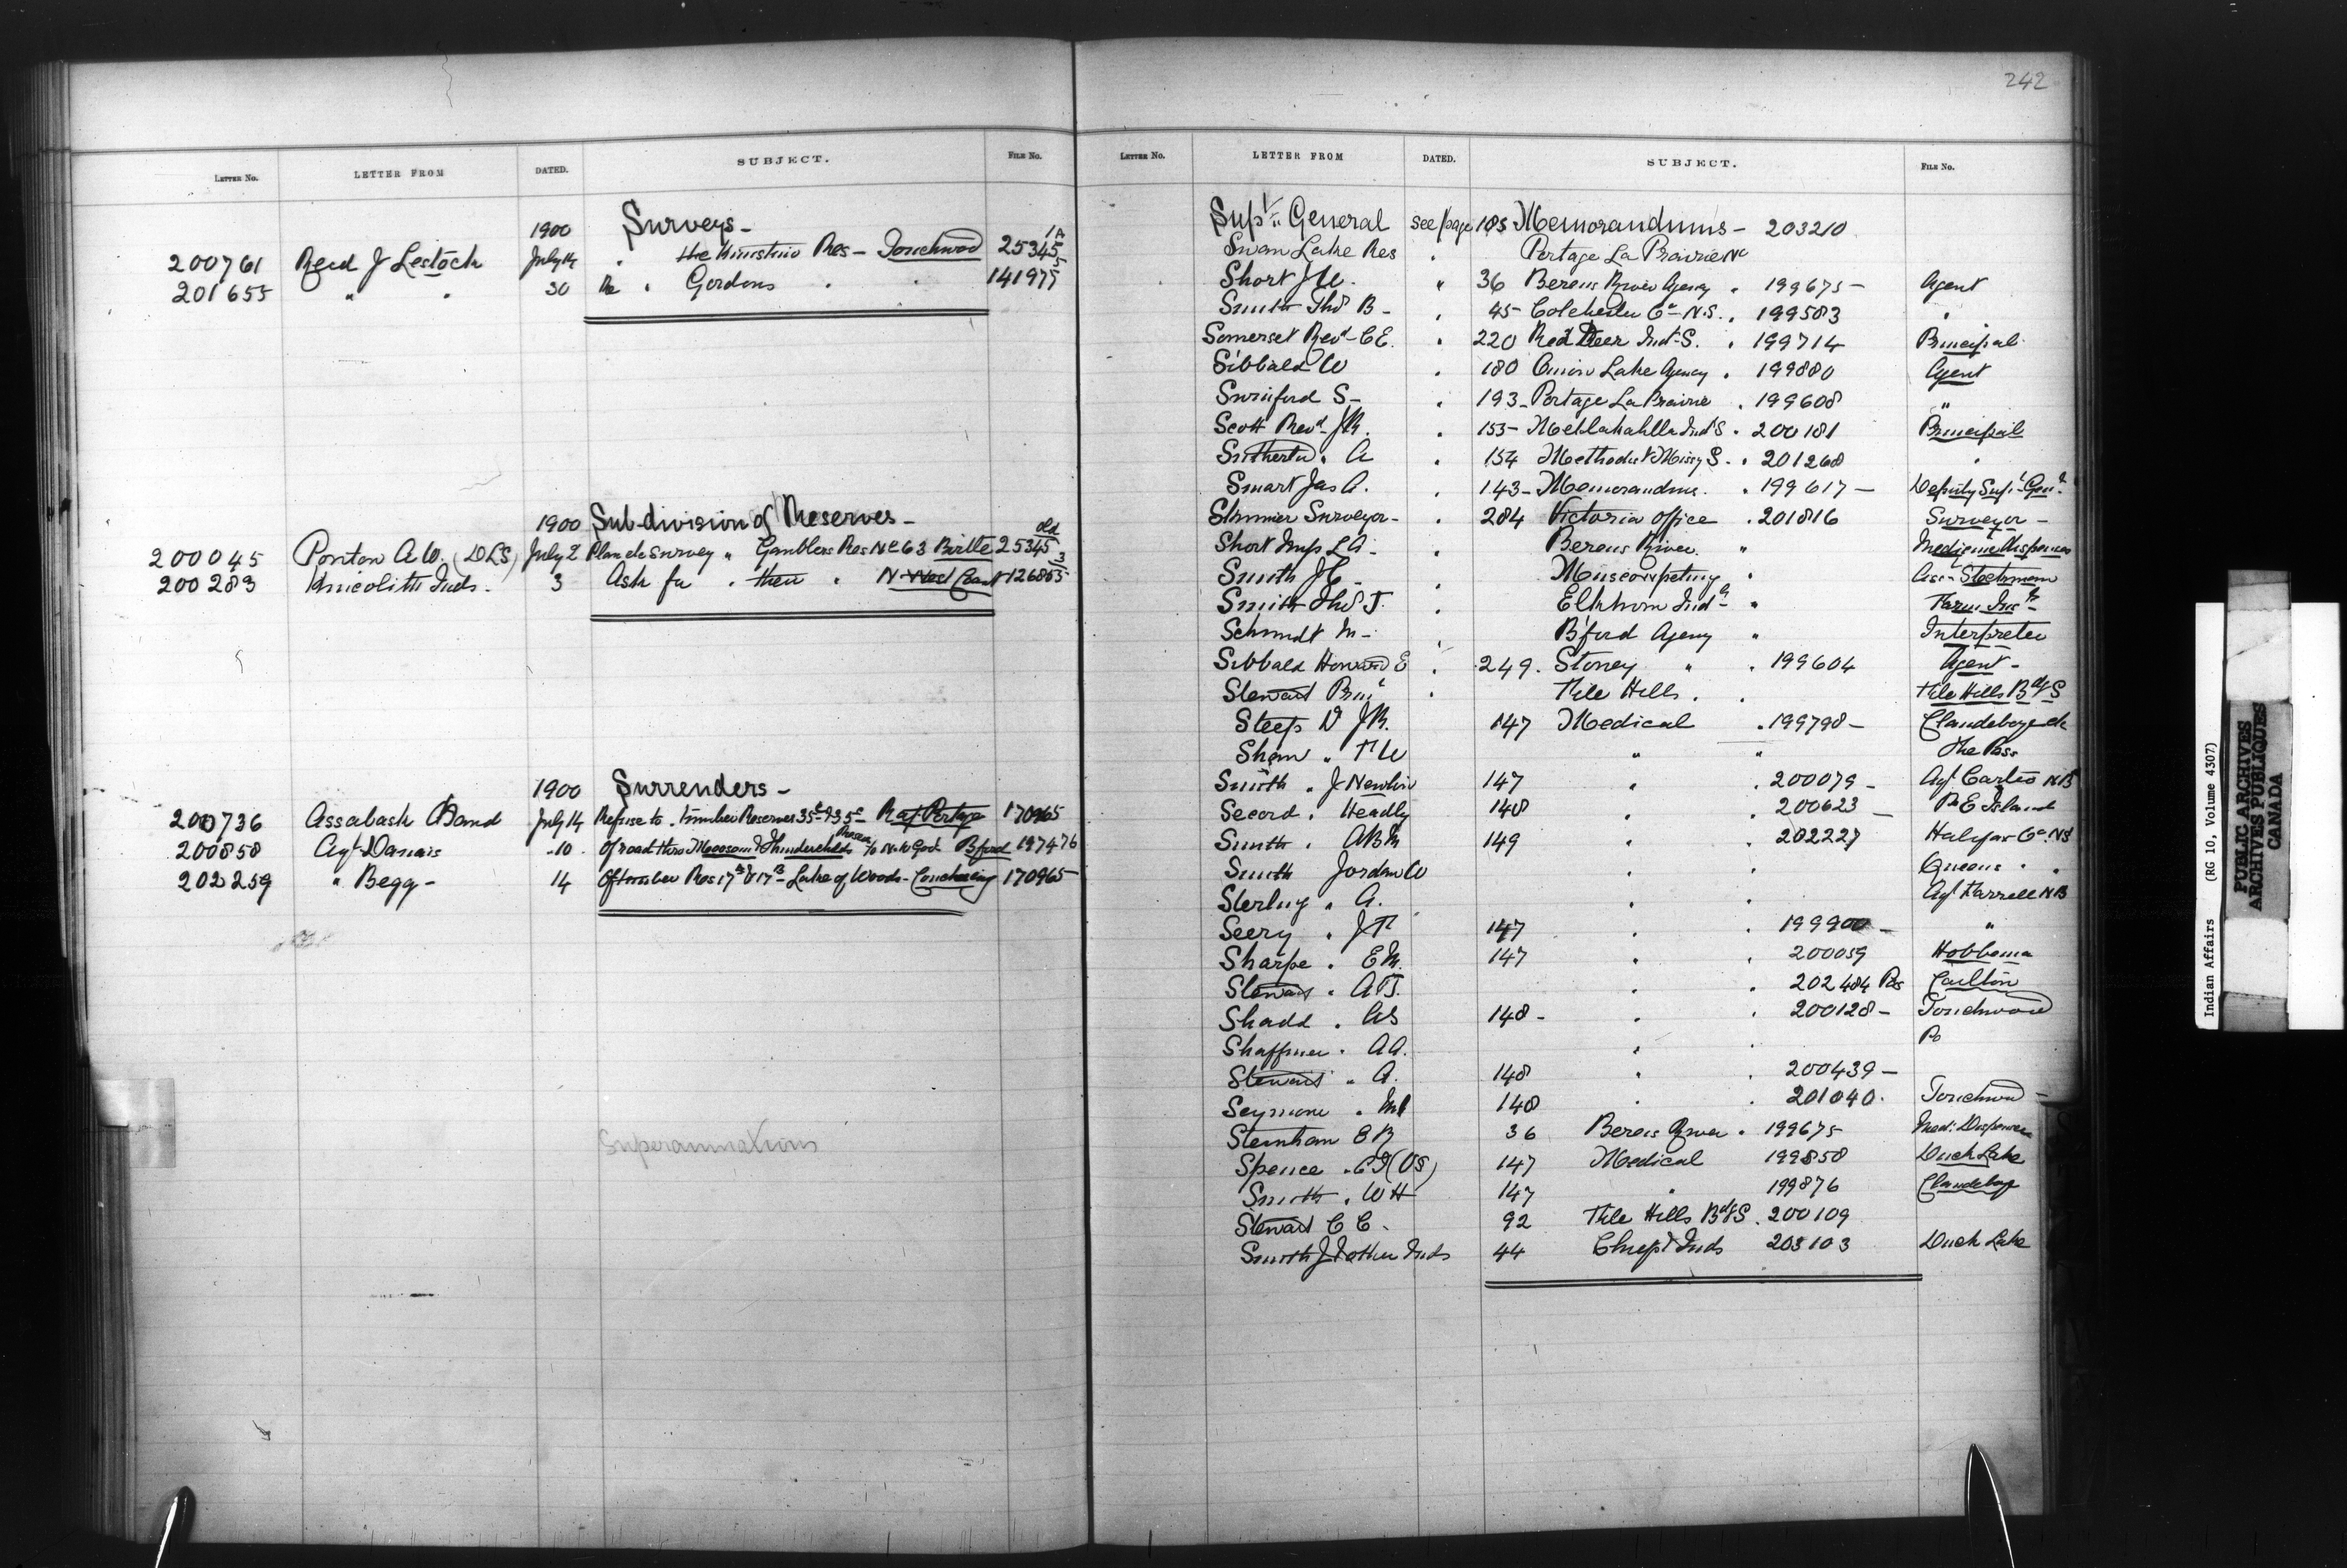 242
LETTER No. LETTER FROM DATED. SUBJECT. FILE No.
1900 Surveys - 1A
200761 Reid J Lestock July 14 " the Kinistino Res - Touchwood 25345 5
201655 " " 30 Re " Gordons " " 141977
1900 Sub-division of Reserves - old
200045 Ponton A.W. (DLS) July 2 Plan de Survey " Gamblers Res No 63 Birtle 25345 3
200283 Inds. 3 Ask for " their " N-West Coast 126865
1900 Surrenders -
200736 Assabash Band July 14 Refuse to " timber Reserves 35 & 35 - Rat Portage 170965
200858 Agt Danais - 10 - Of road thro Moosomin & Thunderchilds Reserves to N.W. Govt Bford 197476
202259 " Begg - 14 Of timber Res 17A & 17B - Lake of Woods - Couchiching 170965
Superannuations
LETTER No. LETTER FROM DATED. SUBJECT. FILE No.
Supt. General see page 185 Memorandums - 203210
Swan Lake Res " Portage La Prairie
Short J W. " 36 Berens River Agency " 199675 - Agent
Smith Thos B - " 45 - Colchester Co N.S. " 199583 "
Somerset Revd C E. " 220 Red Deer Ind. S. " 199714 Principal
Sibbald W " 180 Onion Lake Agency " 199880 Agent
Swinford S - " 193 - Portage La Prairie " 199608 "
Scott Revd J R. " 153 - Metlakahtla Ind S " 200181 Principal
Sutherland " A " 154 Methodist Missy S. " 201268 "
Smart Jas A. " 143 - Memorandums " 199617 - Deputy Supt Genl
Skinner Surveyor - " 284 Victoria Office " 201816 Surveyor -
Short Mrs L A - Berens River " Medicine Dispenser
Smith J C - " Muscowpetung " Asst Stockman
Smith Thos J. " Elkhorn Indl " Farm Insr
Schmidt M - " B'ford Agency " Interpreter
Sibbald Howard E " 249 . Stoney " " 199604 Agent -
Stewart Prin " File Hills " " File Hills Bdg S
Steep Dr J R. 147 Medical " 199798 - Clandeboye &c
Shaw " T W " " The Pass
Smith " J Newton 147 " " 200079 - Agt Carter N B
Secord " Headly 148 " " 200623 - P E Island
Smith " A B M 149 " " 202227 Halifax Co NS
Smith Jordan W " " Queens " "
Sterling " A. " " Agt Farrell N B
Seery " J T 147 " " 199900 - "
Sharpe " E M. 147 " " 200059 Hobbema
Stewart " A T. " " 202484 Carlton
Shadd " A S 148 - " " 200128 - Touchwood
Shaffner " A A. " " Do
Stewart " A. 148 " " 200439 -
Seymour " M 148 " " 201040 . Touchwood -
Steinham E B 36 Berens River " 199675 Med. Dispenser
Spence " C J (V S) 147 Medical 199850 Duck Lake
Smith " W H 147 " 199876 Clandeboye
Stewart C C . 92 File Hills Bdg S . 200109
Smith J & other Inds 44 Inds 203103 Duck Lake
Indian Affairs (RG 10, Volume 4307)
PUBLIC ARCHIVES
ARCHIVES PUBLIQUES
CANADA